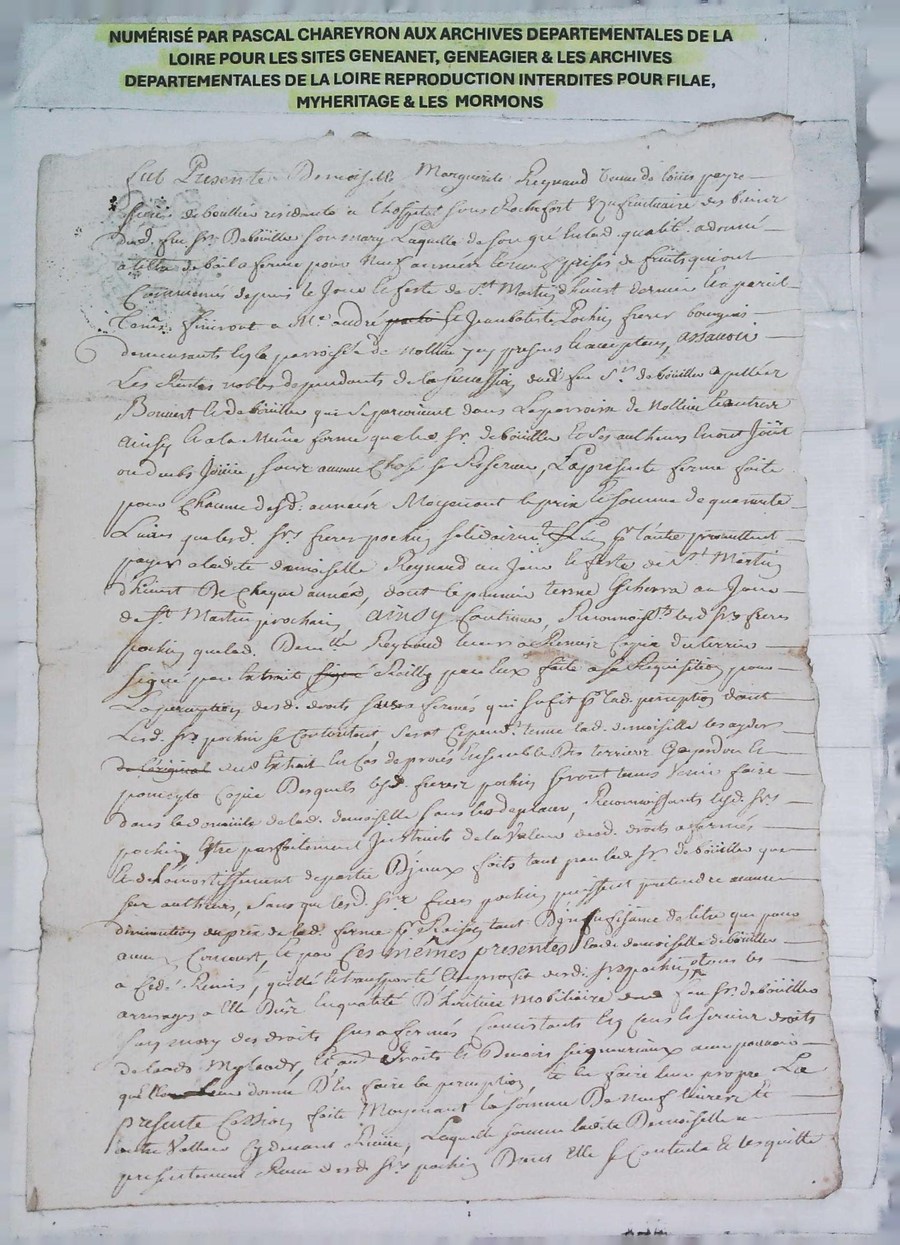 NUMÉRISÉ PAR PASCAL CHAREYRON AUX ARCHIVES DEPARTEMENTALES DE LA
LOIRE POUR LES SITES GENEANET, GENEAGIER & LES ARCHIVES
DEPARTEMENTALES DE LA LOIRE REPRODUCTION INTERDITES POUR FILAE,
MYHERITAGE & LES MORMONS
fut Presente Demoiselle Marguerite Reynaud
de boullier residente a L'hospital sous Rochefort Usufructuaire des biens
dud. feu Sr. De boüllier son mary Laquelle de son gré qualité a donné
a tiltre de bail a ferme pour Neuf années prises de fruits qui ont
Commencés depuis le Jour & feste de St. Martin d'hivert dernier & a pareil
finiront a Me. andré & Jean bateste Pochin freres bourgeois
demeurants la parroisse de nollieu presens & acceptans, assavoir
Les Rentes nobles dependants de la succession dud. feu Sr. de boüllier apellées
Bonvert & de boüllier qui se perçoivent dans La parroisse de Nollieu & autres
ainsy & a la Même forme que led. Sr. de boüllier & ses autheurs en ont Joüit
ou deub Joüir, sans aucune Chose se Reserver, La presente ferme faite
pour Chacune desd. années Moyenant le prix & somme de quarante
Livres que lesd. Srs. freres pochin solidairemt. L'un pr. l'autre promettent
payer a lad. demoiselle Reynaud au Jour & feste de St. Martin
d'hivert De Chaque année, dont le premier terme Echerra au Jour
de St. Martin prochain ainsy Continuer, lesd. Srs. freres
pochin que lad. Demlle. Reynaud Copie du terrier
signé par Extrait par Eux faite a sa Requisition pour
La perception desd. droits sus fermés qui sufit pr. lad. perception dont
Lesd. Srs. pochin se Contentent sera Cepend. tenue lad. demoiselle les ayder
de l'original dud. Extrait En Cas de procès Ensemble Des terriers
Copie Desquels lesd. freres pochin seront tenus Venir faire
dans le domicile de lad. demoiselle sans les deplacer, Reconnoissants lesd. Srs.
pochin Estre parfaitement Instruits de la Valeur desd. droits afermés
& de L'amortissement de partie D'iceux faits tant par led. Sr. de boüllier que
ses autheurs, sans que lesd. Srs. freres pochin puissent pretendre aucune
diminution du prix de lad. ferme pr. Raison tant D'insufisance de titre que pour
aucun Concours, & par Ces mêmes presentes lad. demoiselle de boüllier
a Cedé, Remis, quitté & transporté Au profit desd. Srs. pochin tous les
arrerages a Elle Dûs En qualité D'héritiere Mobiliaire dud. feu Sr. de boüllier
son mary des droits sus afermés Consistants En Cens & servis droits
de Lods Mylaods, & autres Droits & Devoirs seigneuriaux aux pouvoirs
qu'Elle leur donne D'En faire la perception, & En faire leur propre La
presente Cession faite Moyenant la somme De Neuf livres &
autre Valleur Cy devant Reçüe, Laquelle somme lad. Demoiselle a
presentement Reçue desd. Srs. pochin Dont Elle se Contente & les quitte